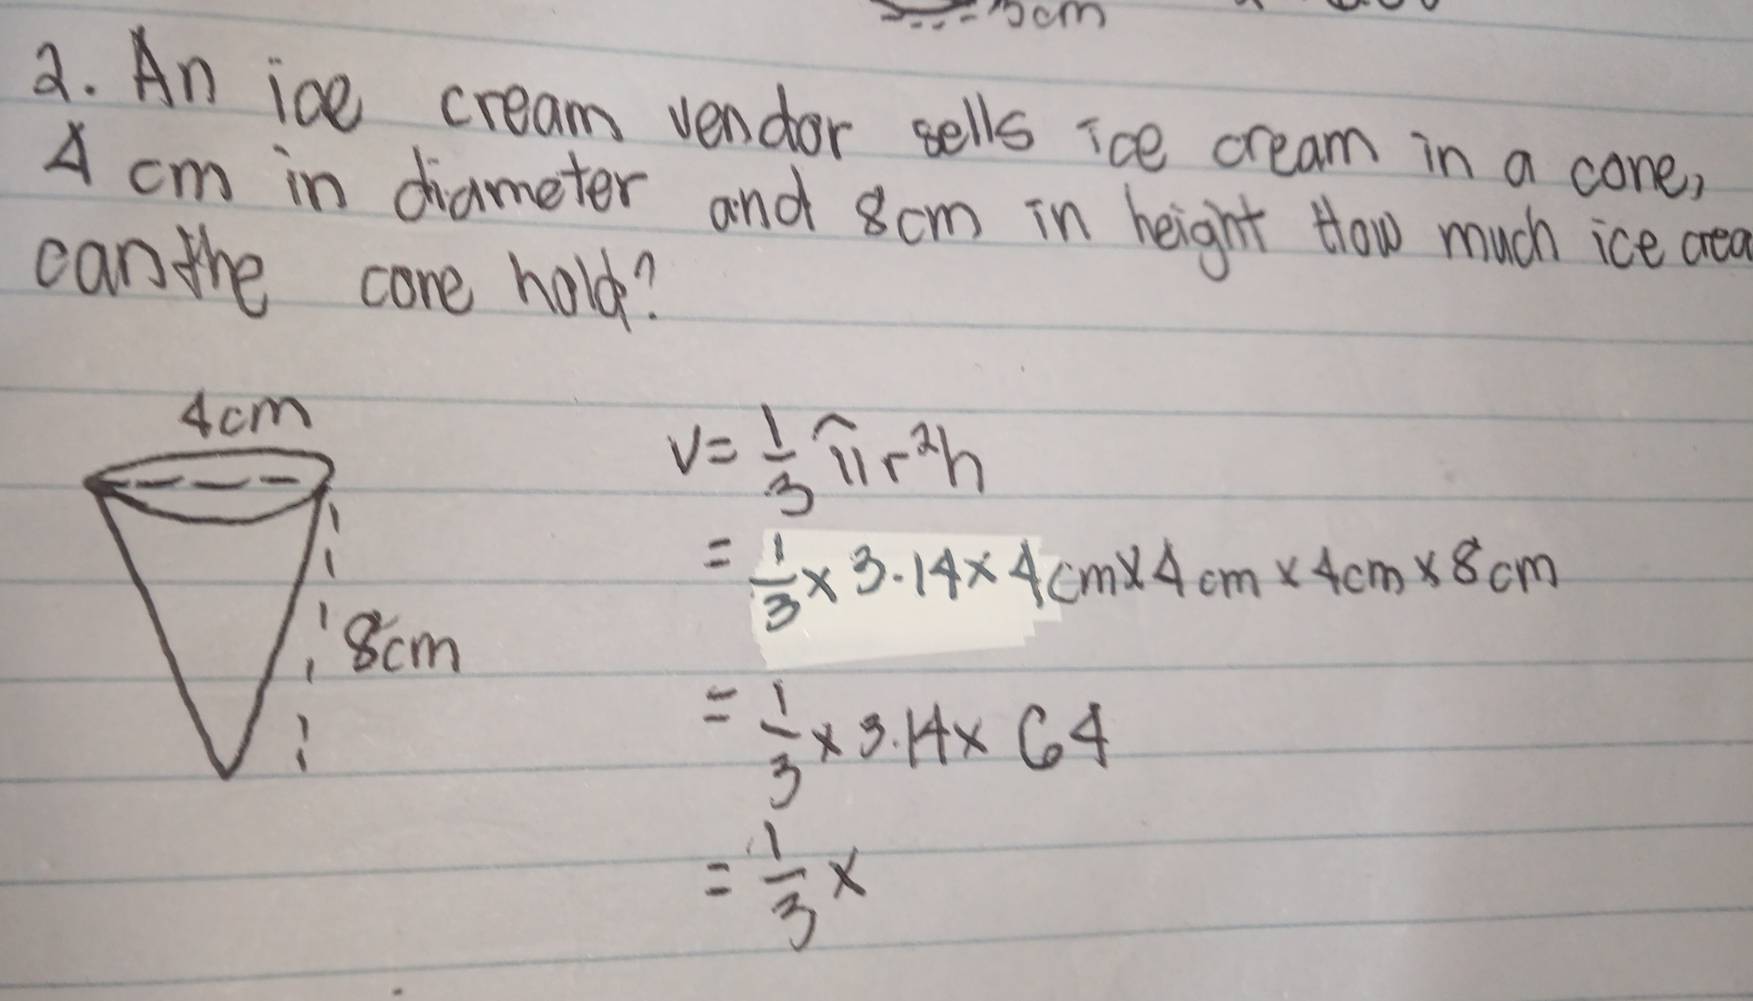 5cm
2. An ice cream vendor sells ice cream in a cone,
4 cm in diameter and 8cm in height How much ice crea
can the cone hold?
4cm
8cm
V= 1/3 πr²h
= 1/3 × 3.14 × 4cm × 4cm × 4cm × 8cm
= 1/3 × 3.14 × 64
= 1/3 ×